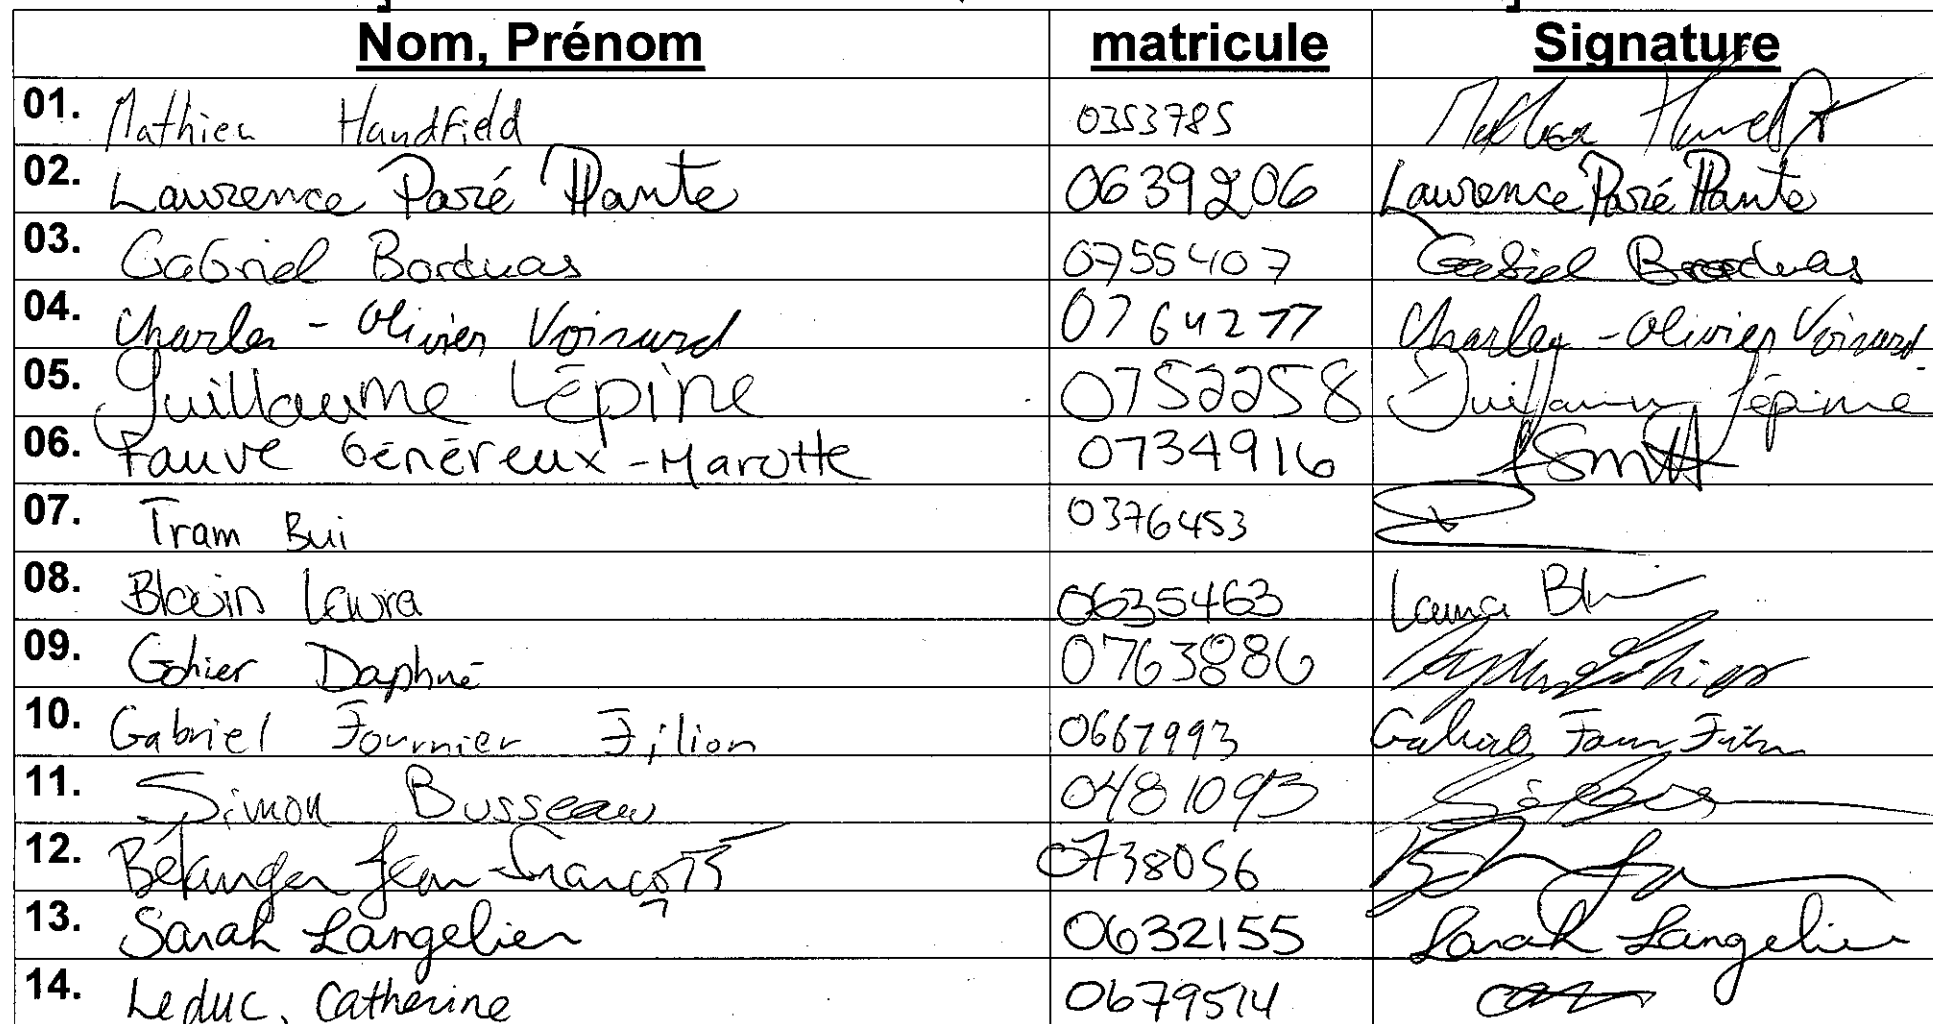 Nom, Prénom matricule Signature
01. Mathieu Handfield 0353785 Mathieu Handfield
02. Laurence Paré Plante 0639206 Laurence Paré Plante
03. Gabriel Borduas 0755407 Gabriel Borduas
04. Charles-Olivier Voinard 0764277 Charles-Olivier Voinard
05. Guillaume Lépine 0752258 Guillaume Lépine
06. Fauve Généreux-Marotte 0734916
07. Tram Bui 0376453
08. Blouin Laura 0635463 Laura Bl
09. Gohier Daphné 0763886 Daphné Gohier
10. Gabriel Fournier Filion 0667993 Gabriel Fourn Filion
11. Simon Busseau 0481093
12. Bélanger Jean-François 0738056
13. Sarah Langelier 0632155 Sarah Langelier
14. Leduc, Catherine 0679514